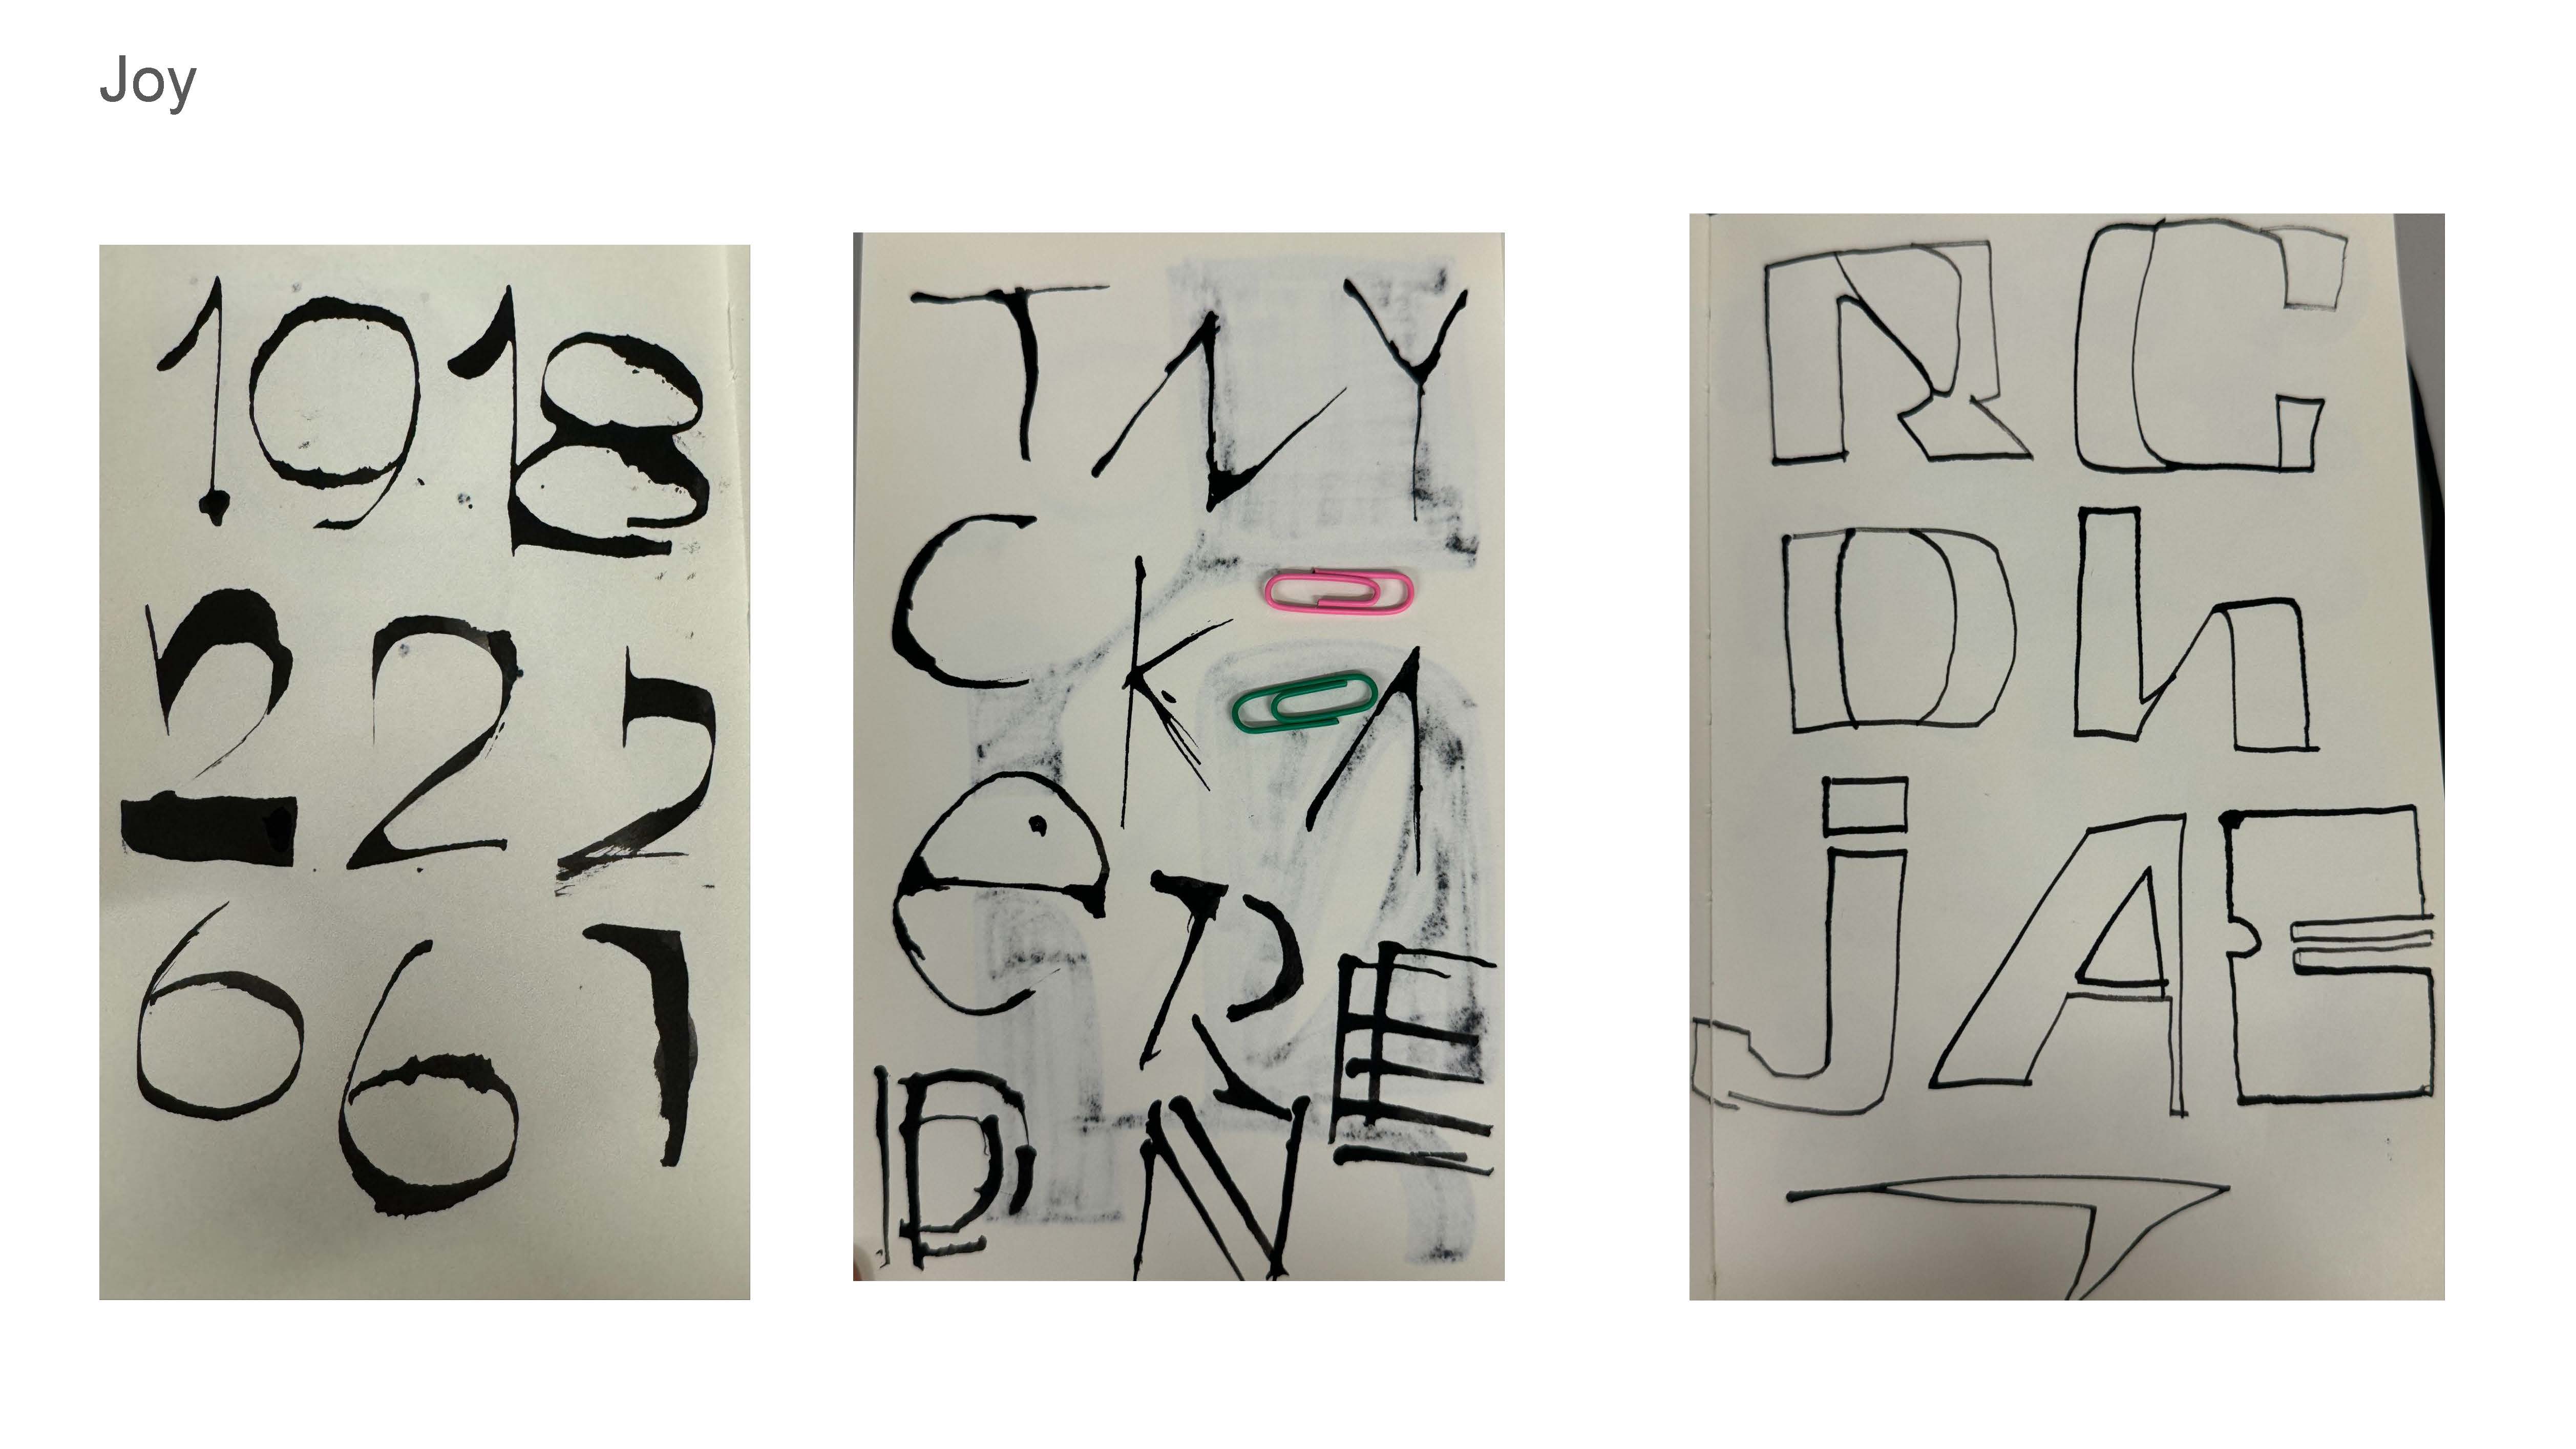 Joy
1918
222
661
T N Y
C K
e R E
D N
R C
D h
j A E